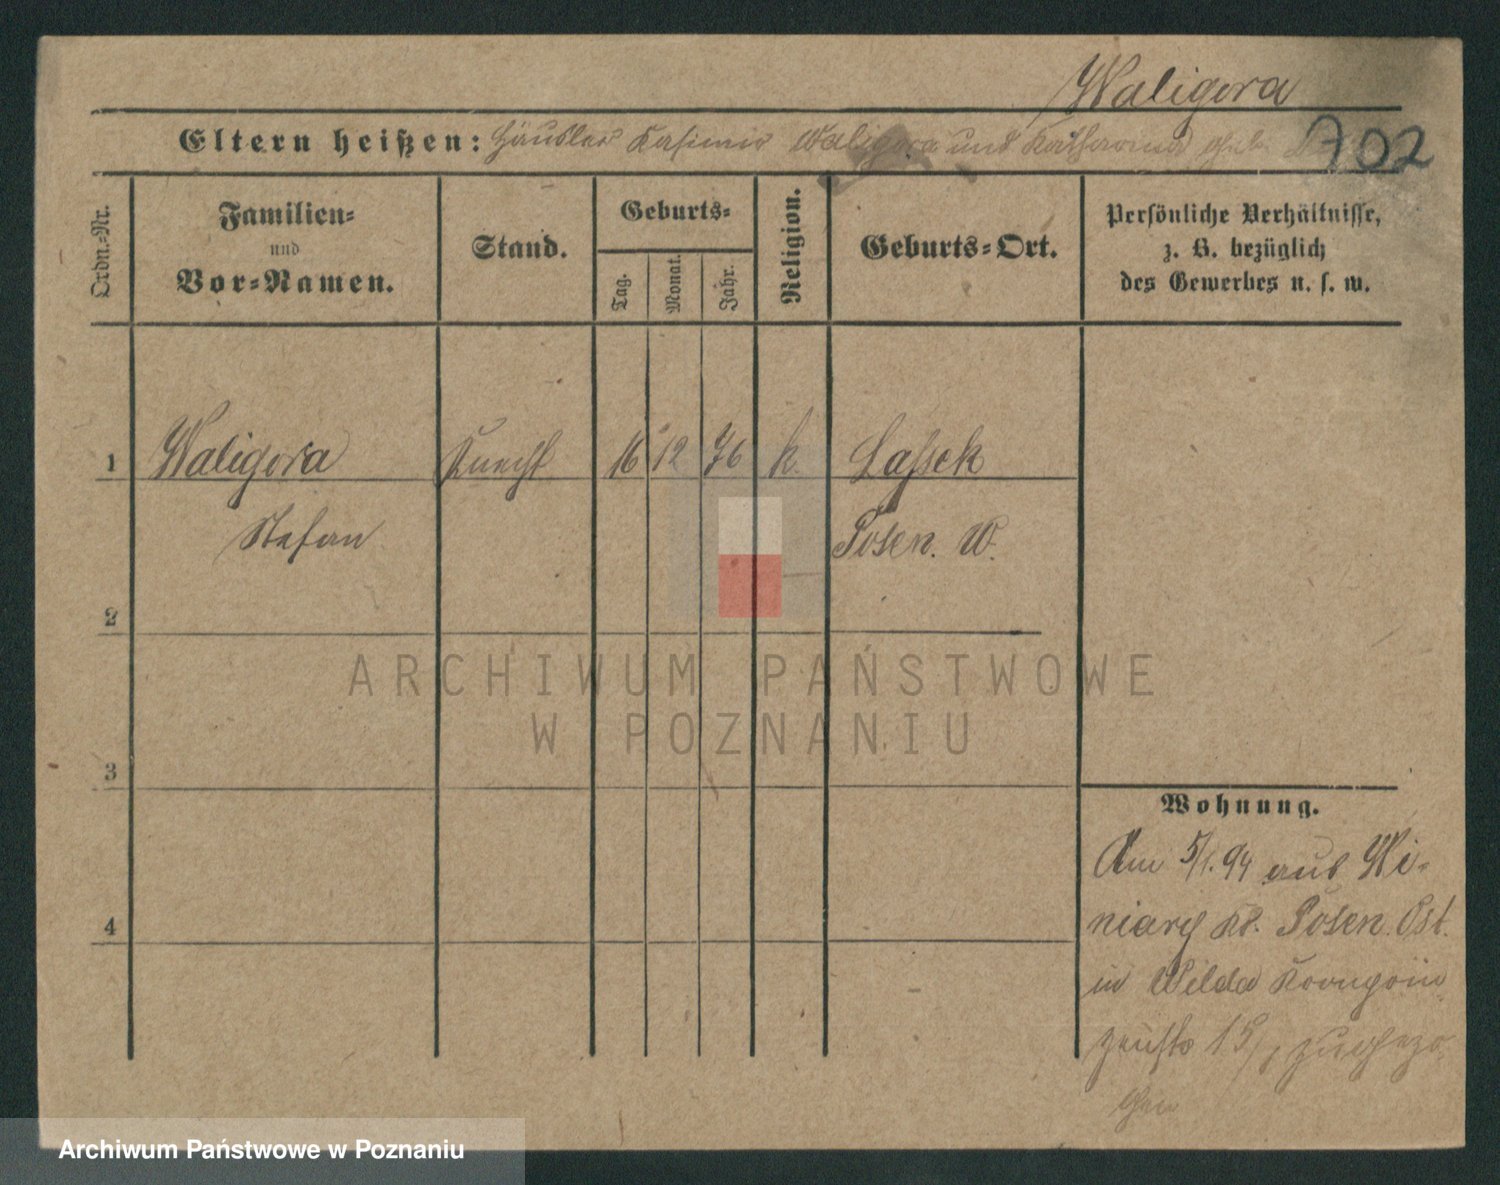 Waligora
Eltern heißen: Häusler Kasimir Waligora und Katharina geb.
702
Ordn.-Nr.
Familien-
und
Vor-Namen.
Stand.
Geburts-
Tag.
Monat.
Jahr.
Religion.
Geburts-Ort.
Persönliche Verhältnisse,
z. B. bezüglich
des Gewerbes u. s. w.
1 Waligora Knecht 16 12 76 k. Lassek
Stefan Posen. W.
2
3
4
ARCHIWUM PAŃSTWOWE
W POZNANIU
Wohnung.
Am 5/1. 94 aus Wi-
niary Kr. Posen. Ost.
in Wilda
15/, zugezo-
gen
Archiwum Państwowe w Poznaniu